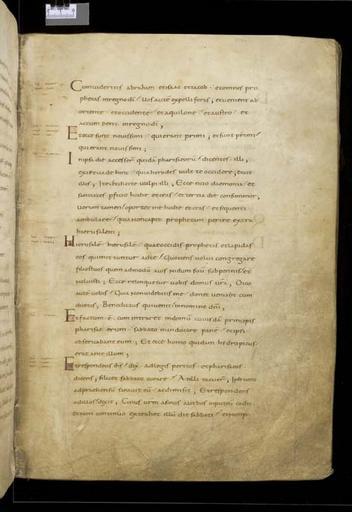 Cum uideritis abraham et isaac et iacob · et omnes pro
phetas in regno dī / uos autē expelli foras ; et uenient ab
oriente et occidente et aquilone et austro / et
accumbent in regno dī ;
Et ecce sunt nouissimi qui erant primi / et sunt primi
qui erant nouissimi ;
In ipsa die accesserunt quidā pharisaeorū / dicentes illi ;
exi et uade hinc quia herodes uult te occidere ; Et ait
illis ; Ite dicite uulpi illi ; Ecce eicio daemonia et
sanitates perficio hodie et cras / et tertia die consummor ;
uerum tamen oportet me hodie et cras et sequenti
ambulare / quia non capit prophetam perire extra
hierusalem ;
Hierusalē hierusalē quae occidis prophetas et lapidas
eos qui mittuntur ad te / Quotiens uolui congregare
filios tuos quem admodū auis nidum suū sub pinnis / et
noluisti ; Ecce relinquetur uobis domus ura ; Dico
autē uobis / Quia non uidebitis me donec ueniat cum
dicetis / Benedictus qui uenit in nomine dñi ;
Et factum ē cum intraret in domū cuiusdā principis
pharisaeorum sabbato manducare panē / et ipsi
obseruabant eum ; Et ecce homo quidam hydropicus
erat ante illum ;
Et respondens ihs / dix ad legis peritos et pharisaeos
dicens / si licet sabbato curare / At illi tacuerī ; Ipse uero
adprehensū sanauit eū ac dimisit ; Et respondens
ad illos / dixit ; Cuius urm asinus aut bos in puteū cadet
et non continuo extrahet illū die sabbati /